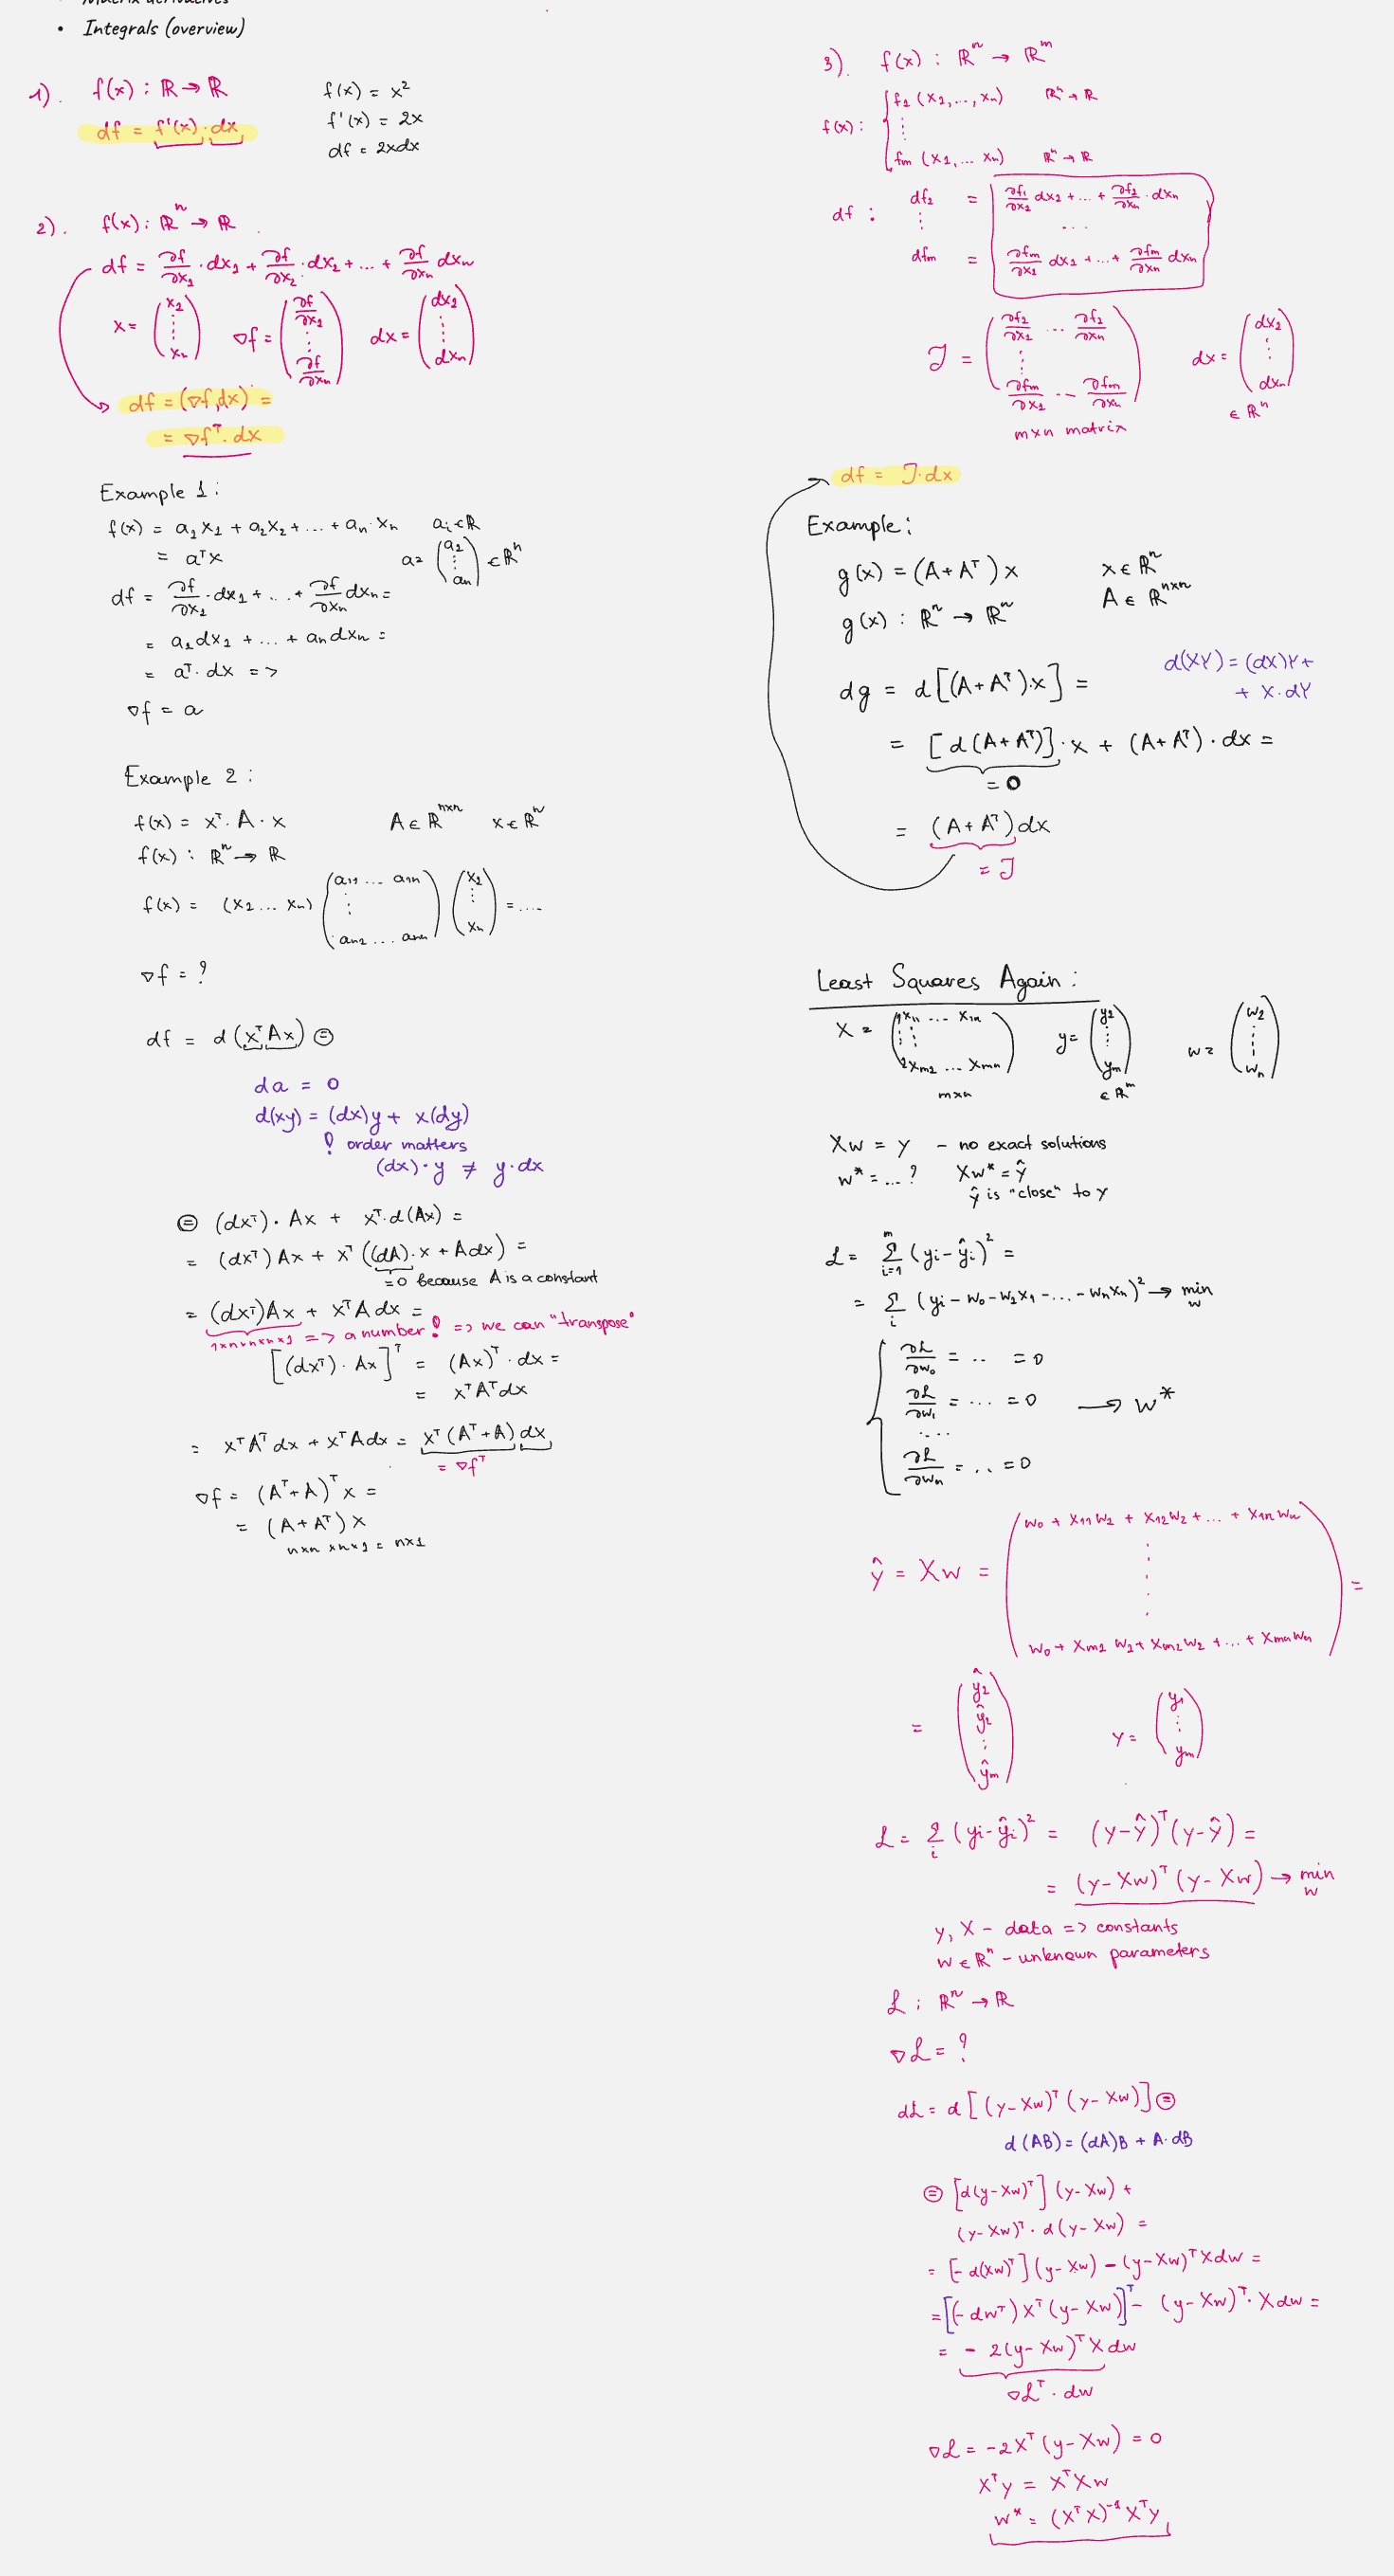 • Integrals (overview)
1). f(x) : ℝ → ℝ
df = f'(x) · dx
f(x) = x²
f'(x) = 2x
df = 2xdx
2). f(x) : ℝⁿ → ℝ
df = ∂f/∂x₁ · dx₁ + ∂f/∂x₂ · dx₂ + ... + ∂f/∂xₙ dxₙ
x = (x₁ ⋮ xₙ) ∇f = (∂f/∂x₁ ⋮ ∂f/∂xₙ) dx = (dx₁ ⋮ dxₙ)
df = (∇f, dx) =
= ∇fᵀ · dx
Example 1:
f(x) = a₁x₁ + a₂x₂ + ... + aₙ·xₙ aᵢ ∈ ℝ
= aᵀx a = (a₁ ⋮ aₙ) ∈ ℝⁿ
df = ∂f/∂x₁ · dx₁ + ... + ∂f/∂xₙ dxₙ =
= a₁dx₁ + ... + aₙdxₙ =
= aᵀ · dx =>
∇f = a
Example 2 :
f(x) = xᵀ · A · x A ∈ ℝⁿˣⁿ x ∈ ℝⁿ
f(x) : ℝⁿ → ℝ
f(x) = (x₁ ... xₙ) (a₁₁ ... a₁ₙ ⋮ aₙ₁ ... aₙₙ) (x₁ ⋮ xₙ) = ....
∇f = ?
df = d(xᵀAx) ⊜
da = 0
d(xy) = (dx)y + x(dy)
! order matters
(dx)·y ≠ y·dx
⊜ (dxᵀ) · Ax + xᵀ·d(Ax) =
= (dxᵀ)Ax + xᵀ((dA)·x + Adx) =
=0 because A is a constant
= (dxᵀ)Ax + xᵀAdx =
1×n×n×n×1 => a number! => we can "transpose"
[(dxᵀ)·Ax]ᵀ = (Ax)ᵀ·dx =
= xᵀAᵀdx
= xᵀAᵀdx + xᵀAdx = xᵀ(Aᵀ+A)dx
= ∇fᵀ
∇f = (Aᵀ+A)ᵀx =
= (A+Aᵀ)x
n×n ×n×1 = n×1
3). f(x) : ℝⁿ → ℝᵐ
f(x) : { f₁(x₁,...,xₙ) ℝⁿ→ℝ
⋮
fₘ(x₁,... xₙ) ℝⁿ→ℝ
df : df₁ = ∂f₁/∂x₁ dx₁ + ... + ∂f₁/∂xₙ · dxₙ
⋮ ...
dfₘ = ∂fₘ/∂x₁ dx₁ + ... + ∂fₘ/∂xₙ dxₙ
J = (∂f₁/∂x₁ ... ∂f₁/∂xₙ ⋮ ∂fₘ/∂x₁ ... ∂fₘ/∂xₙ) dx = (dx₁ ⋮ dxₙ)
m×n matrix ∈ ℝⁿ
df = J·dx
Example:
g(x) = (A+Aᵀ)x x ∈ ℝⁿ
g(x) : ℝⁿ → ℝⁿ A ∈ ℝⁿˣⁿ
d(XY) = (dX)Y +
+ X·dY
dg = d[(A+Aᵀ)·x] =
= [d(A+Aᵀ)]·x + (A+Aᵀ)·dx =
= 0
= (A+Aᵀ)dx
= J
Least Squares Again :
X = (1 x₁₁ ... x₁ₙ ⋮ 1 xₘ₁ ... xₘₙ) y = (y₁ ⋮ yₘ) w = (w₁ ⋮ wₙ)
m×n ∈ ℝᵐ
Xw = y – no exact solutions
w* = ...? Xw* = ŷ
ŷ is "close" to y
ℒ = Σᵢ₌₁ᵐ (yᵢ - ŷᵢ)² =
= Σᵢ (yᵢ - w₀ - w₁x₁ - ... - wₙxₙ)² → min w
∂ℒ/∂w₀ = .. = 0
∂ℒ/∂w₁ = ... = 0 → w*
....
∂ℒ/∂wₙ = .. = 0
ŷ = Xw = (w₀ + x₁₁w₁ + x₁₂w₂ + ... + x₁ₙwₙ
⋮
w₀ + xₘ₁w₁ + xₘ₂w₂ + ... + xₘₙwₙ) =
= (ŷ₁ ŷ₂ ⋮ ŷₘ) y = (y₁ ⋮ yₘ)
ℒ = Σᵢ (yᵢ - ŷᵢ)² = (y-ŷ)ᵀ(y-ŷ) =
= (y-Xw)ᵀ(y-Xw) → min w
y, X – data => constants
w ∈ ℝⁿ – unknown parameters
ℒ : ℝⁿ → ℝ
∇ℒ = ?
dℒ = d[(y-Xw)ᵀ(y-Xw)] ⊜
d(AB) = (dA)B + A·dB
⊜ [d(y-Xw)ᵀ](y-Xw) +
(y-Xw)ᵀ · d(y-Xw) =
= [-d(Xw)ᵀ](y-Xw) - (y-Xw)ᵀXdw =
= [(-dwᵀ)Xᵀ(y-Xw)]ᵀ - (y-Xw)ᵀ·Xdw =
= -2(y-Xw)ᵀXdw
∇ℒᵀ · dw
∇ℒ = -2Xᵀ(y-Xw) = 0
Xᵀy = XᵀXw
w* = (XᵀX)⁻¹Xᵀy